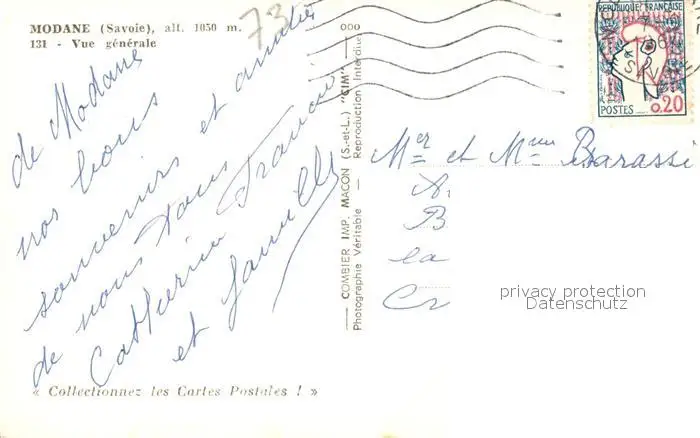 MODANE (Savoie), alt. 1050 m.
131 - Vue générale
73
de Modane
nos bons
souvenirs et amitiés
de nous tous
Catherine Francis
et famille
« Collectionnez les Cartes Postales ! »
000
COMBIER IMP. MACON (S.-et-L.) "CIM"
Photographie Véritable — Reproduction Interdite
REPUBLIQUE FRANÇAISE
POSTES 0,20
Mr et Mme Barassi
B
la
Cr
privacy protection
Datenschutz